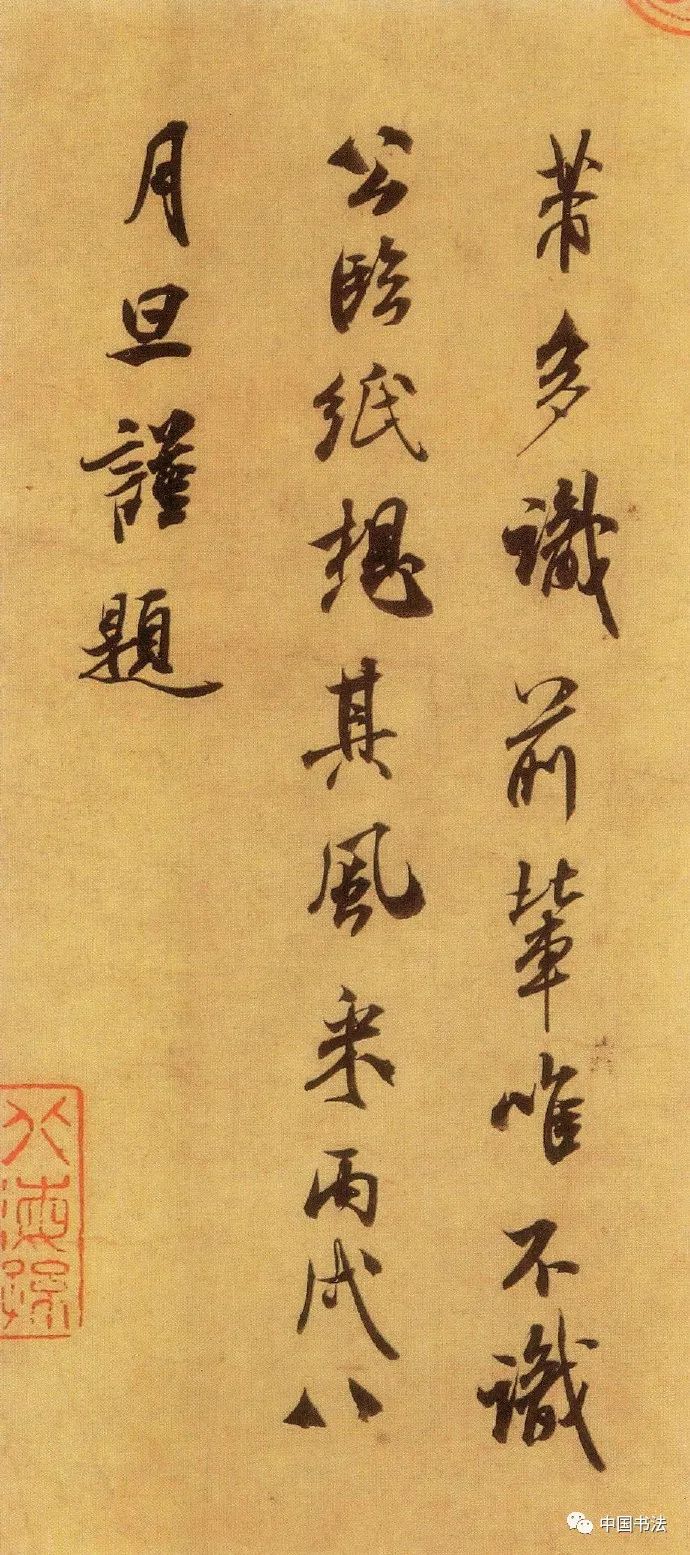 芾多識前輩唯不識
公臨紙想其風采丙戌八
月旦謹題
中国书法